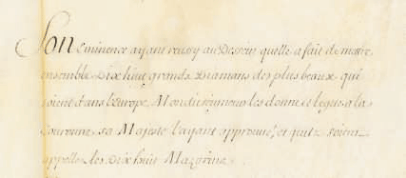 Son Eminence ayant reussy au Dessein quelle a fait de mettre
ensemble Dix huit grands Diamans des plus beaux qui
soient dans l'Europe, les donne et legue a la
Couronne, sa Majesté l'ayant approuvé, et qu'ilz soient
appellez les Dix huit Mazarins.